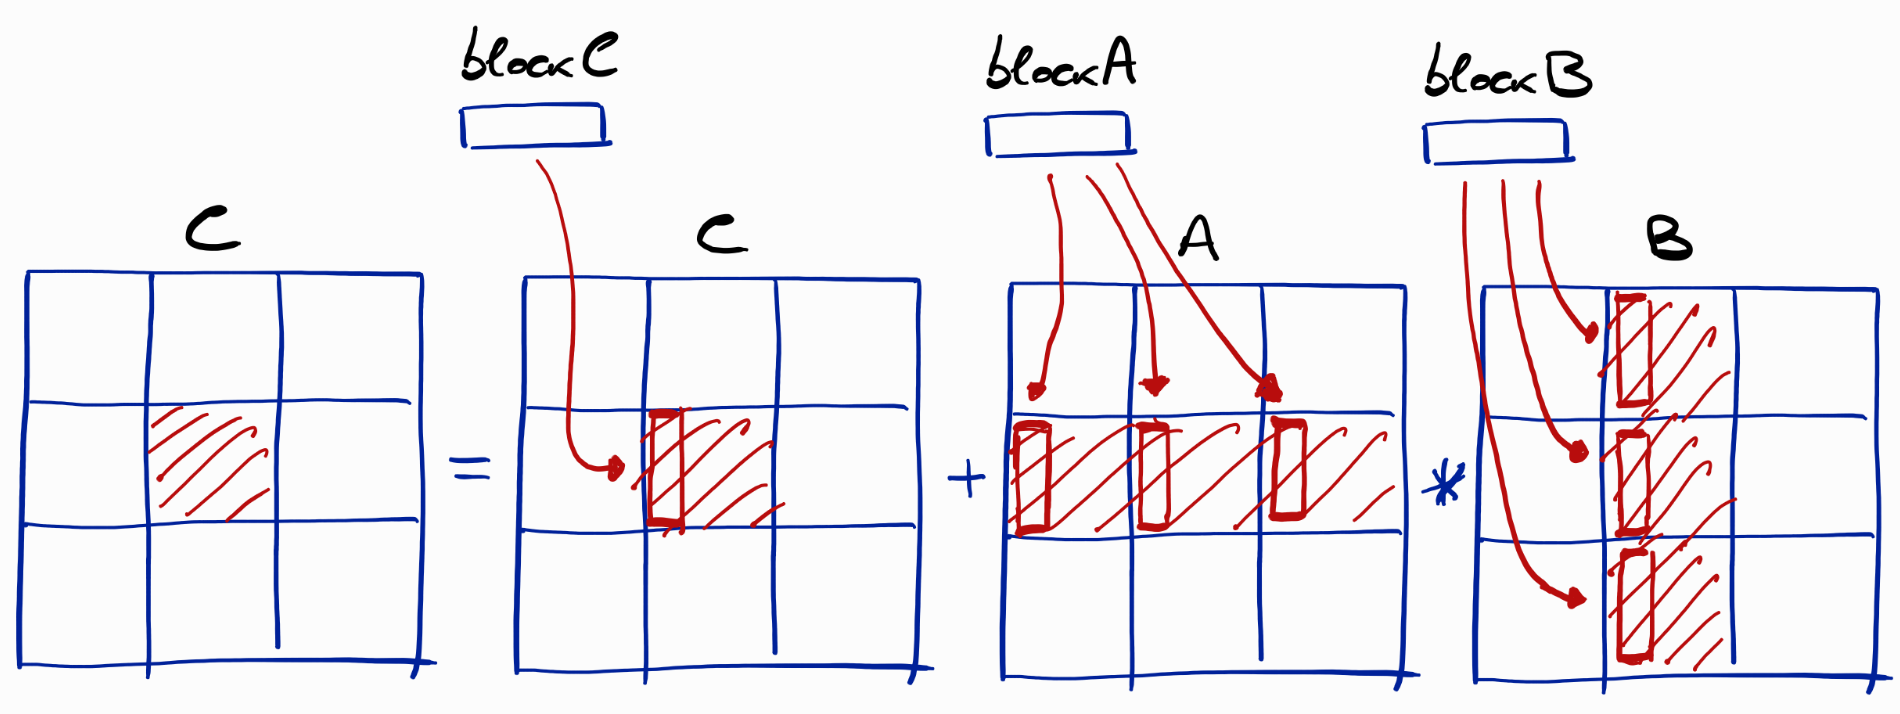 blockC
blockA
blockB
C
=
C
+
A
*
B